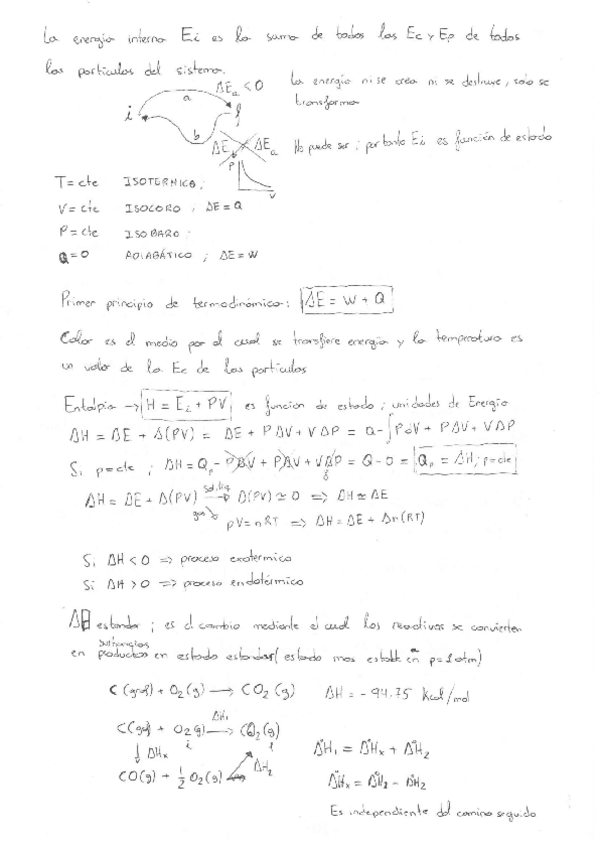 La energía interna Ei es la suma de todas las Ec y Ep de todas
las partículas del sistema.
ΔEa < 0
a
i
f
b
La energía ni se crea ni se destruye, solo se
transforma
ΔE
ΔEa
No puede ser; por tanto Ei es función de estado
P
V
T = cte ISOTERMICO;
V = cte ISOCORO; ΔE = Q
P = cte ISOBARO;
Q = 0 ADIABÁTICO; ΔE = W
Primer principio de termodinámica: ΔE = W + Q
Calor es el medio por el cual se transfiere energía y la temperatura es
un valor de la Ec de las partículas
Entalpia → H = Ei + PV es función de estado; unidades de Energía
ΔH = ΔE + Δ(PV) = ΔE + PΔV + VΔP = Q - ∫PdV + PΔV + VΔP
Si p = cte; ΔH = Qp - PΔV + PΔV + VΔP = Q - 0 = Qp = ΔH; p = cte
0
ΔH = ΔE + Δ(PV) sol, liq → Δ(PV) ≃ 0 => ΔH ≃ ΔE
gas ↘ pV = nRT => ΔH = ΔE + Δn(RT)
Si ΔH < 0 => proceso exotermico
Si ΔH > 0 => proceso endotérmico
ΔH estandar; es el cambio mediante el cual los reactivos se convierten
sustancias
en productos en estado estandar (estado mas estable en p = 1 atm)
C (graf) + O2 (g) → CO2 (g) ΔH = - 94.75 Kcal/mol
C (graf) + O2 (g) ΔH1 → CO2 (g)
i
f
↓ ΔHx
ΔH2
CO (g) + 1/2 O2 (g)
ΔH°1 = ΔH°x + ΔH°2
ΔH°x = ΔH°1 - ΔH°2
Es independiente del camino seguido